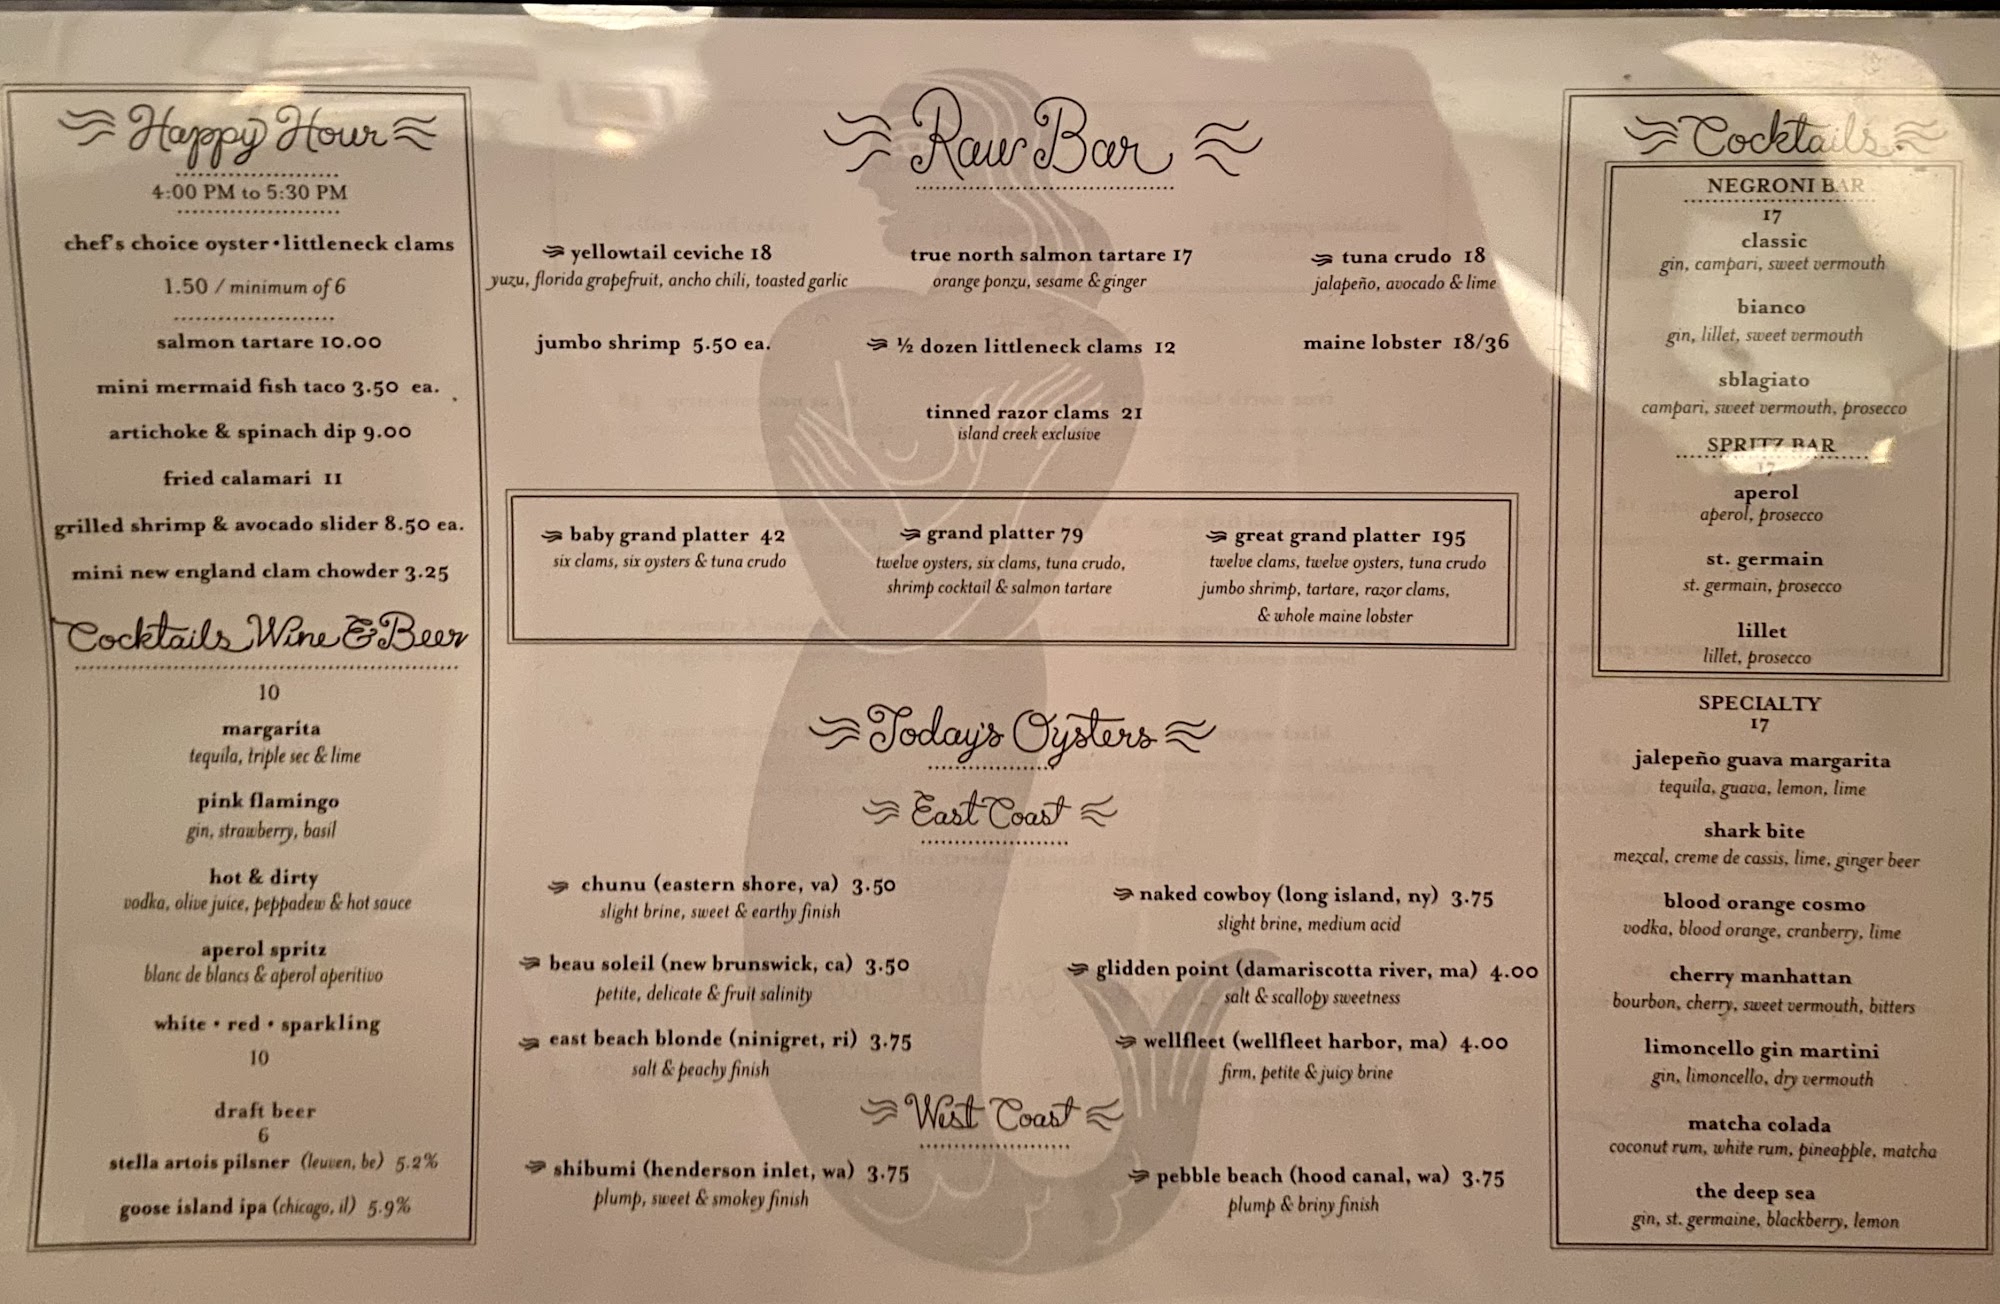 Happy Hour
4:00 PM to 5:30 PM
chef's choice oyster • littleneck clams
1.50 / minimum of 6
salmon tartare 10.00
mini mermaid fish taco 3.50 ea.
artichoke & spinach dip 9.00
fried calamari 11
grilled shrimp & avocado slider 8.50 ea.
mini new england clam chowder 3.25
Cocktails, Wine & Beer
10
margarita
tequila, triple sec & lime
pink flamingo
gin, strawberry, basil
hot & dirty
vodka, olive juice, peppadew & hot sauce
aperol spritz
blanc de blancs & aperol aperitivo
white • red • sparkling
10
draft beer
6
stella artois pilsner (leuven, be) 5.2%
goose island ipa (chicago, il) 5.9%
Raw Bar
yellowtail ceviche 18
yuzu, florida grapefruit, ancho chili, toasted garlic
true north salmon tartare 17
orange ponzu, sesame & ginger
tuna crudo 18
jalapeño, avocado & lime
jumbo shrimp 5.50 ea.
½ dozen littleneck clams 12
maine lobster 18/36
tinned razor clams 21
island creek exclusive
baby grand platter 42
six clams, six oysters & tuna crudo
grand platter 79
twelve oysters, six clams, tuna crudo,
shrimp cocktail & salmon tartare
great grand platter 195
twelve clams, twelve oysters, tuna crudo
jumbo shrimp, tartare, razor clams,
& whole maine lobster
Today's Oysters
East Coast
chunu (eastern shore, va) 3.50
slight brine, sweet & earthy finish
naked cowboy (long island, ny) 3.75
slight brine, medium acid
beau soleil (new brunswick, ca) 3.50
petite, delicate & fruit salinity
glidden point (damariscotta river, ma) 4.00
salt & scallopy sweetness
east beach blonde (ninigret, ri) 3.75
salt & peachy finish
wellfleet (wellfleet harbor, ma) 4.00
firm, petite & juicy brine
West Coast
shibumi (henderson inlet, wa) 3.75
plump, sweet & smokey finish
pebble beach (hood canal, wa) 3.75
plump & briny finish
Cocktails
NEGRONI BAR
17
classic
gin, campari, sweet vermouth
bianco
gin, lillet, sweet vermouth
sblagiato
campari, sweet vermouth, prosecco
SPRITZ BAR
17
aperol
aperol, prosecco
st. germain
st. germain, prosecco
lillet
lillet, prosecco
SPECIALTY
17
jalepeño guava margarita
tequila, guava, lemon, lime
shark bite
mezcal, creme de cassis, lime, ginger beer
blood orange cosmo
vodka, blood orange, cranberry, lime
cherry manhattan
bourbon, cherry, sweet vermouth, bitters
limoncello gin martini
gin, limoncello, dry vermouth
matcha colada
coconut rum, white rum, pineapple, matcha
the deep sea
gin, st. germaine, blackberry, lemon